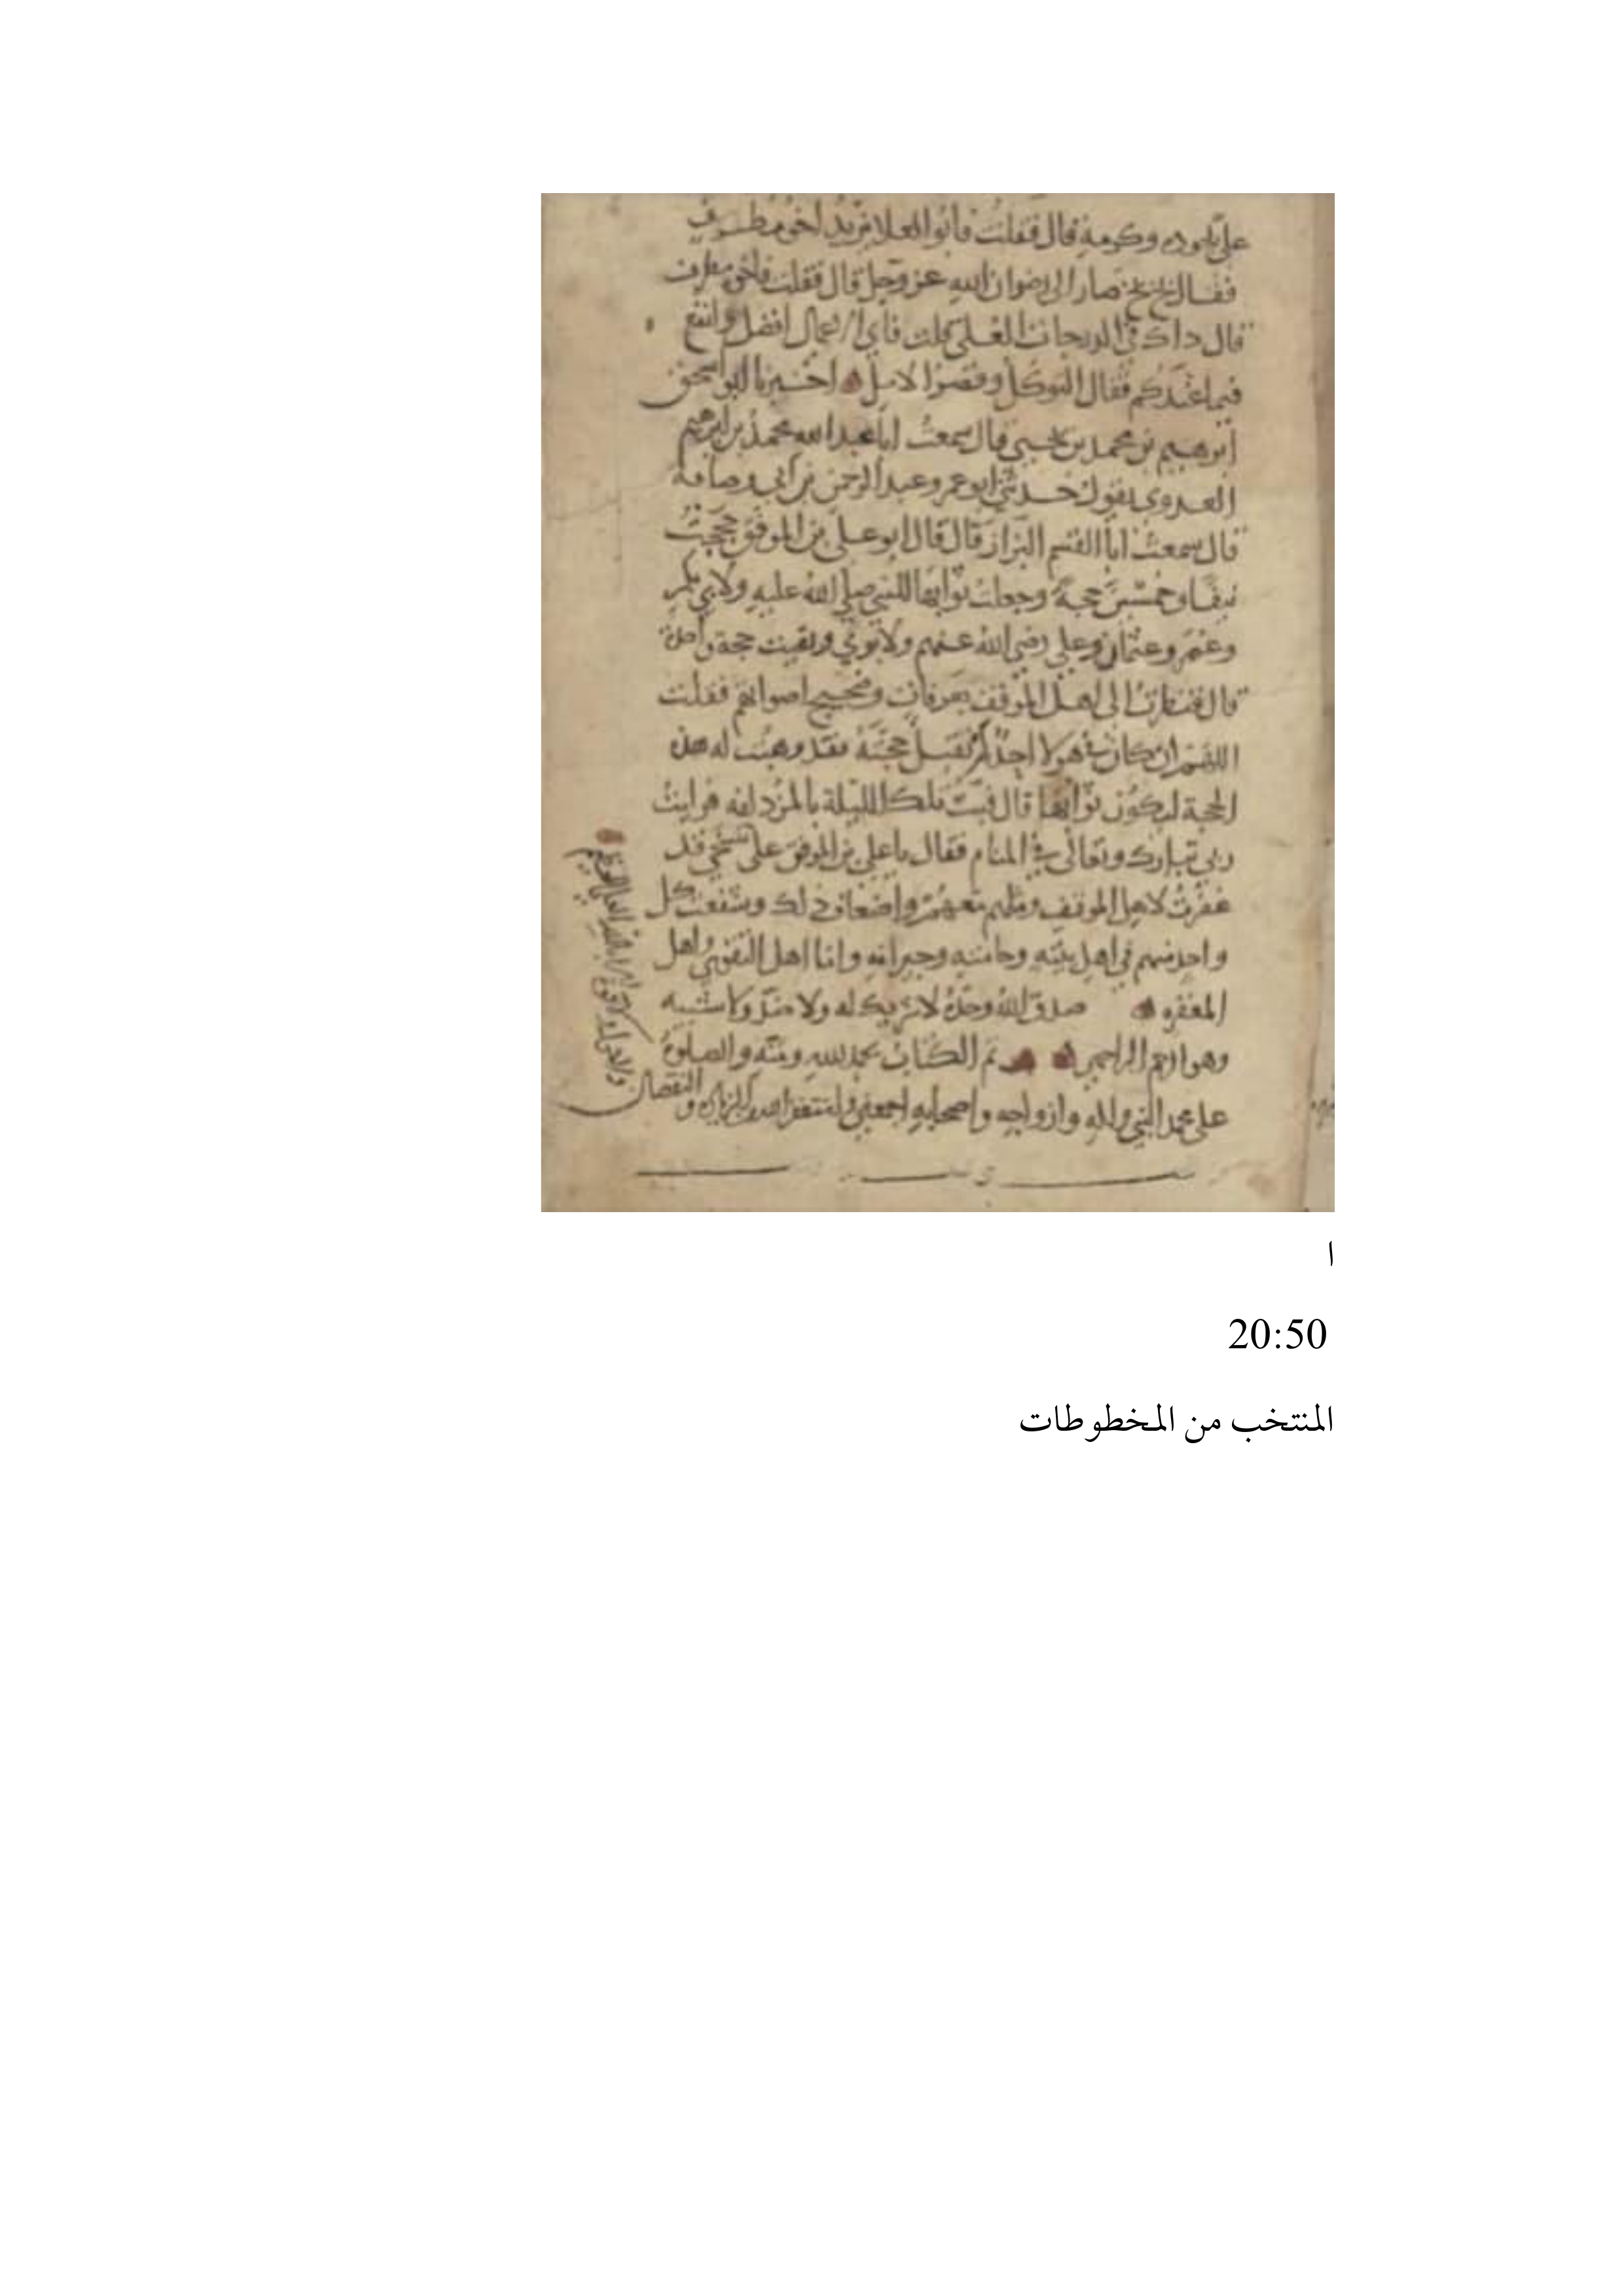 على بجوده وكرمه قال فقلت فابو العلا يزيد اخو مطرف
فقال بخ بخ صار الى رضوان الله عز وجل قال فقلت فاخي مطرف
قال داك في الدرجات العلى قلت فاي الاعمال افضل وانفع
فيما عندكم فقال التوكل وقصر الامل اخبرنا ابو اسحق
ابرهيم بن محمد بن يحيى قال سمعت ابا عبد الله محمد بن ابرهيم
العدوي يقول حدثني ابو عمرو عبد الرحمن بن ابي رصافه
قال سمعت ابا القسم البزاز قال قال ابو علي بن الموفق حججت
نيفا وخمسين حجة وجعلت ثوابها للنبي صلى الله عليه ولابي بكر
وعمر وعثمان وعلي رضي الله عنهم ولابوي وبقيت حجة واحدة
قال فنظرت الى اهل الموقف بعرفات وضجيج اصواتهم فقلت
اللهم ان كان في هولا احد لم تقبل حجته فقد وهبت له هذه
الحجة ليكون ثوابها قال فبت تلك الليلة بالمزدلفه فرايت
ربي تبارك وتعالى في المنام فقال يا علي بن الموفق على تسخى قد
غفرت لاهل الموقف ومثلهم معهم واضعاف ذلك وشفعت كل
واحد منهم في اهل بيته وخاصته وجيرانه وانا اهل التقوى واهل
المغفره صدق الله وحده لا شريك له ولا ضد ولا شبيه
وهو ارحم الراحمين تم الكتاب بحمد الله ومنه والصلوة
على محمد النبي واله وازواجه واصحابه اجمعين واستغفر الله من الزيادة و
النقصان
ا
20:50
المنتخب من المخطوطات